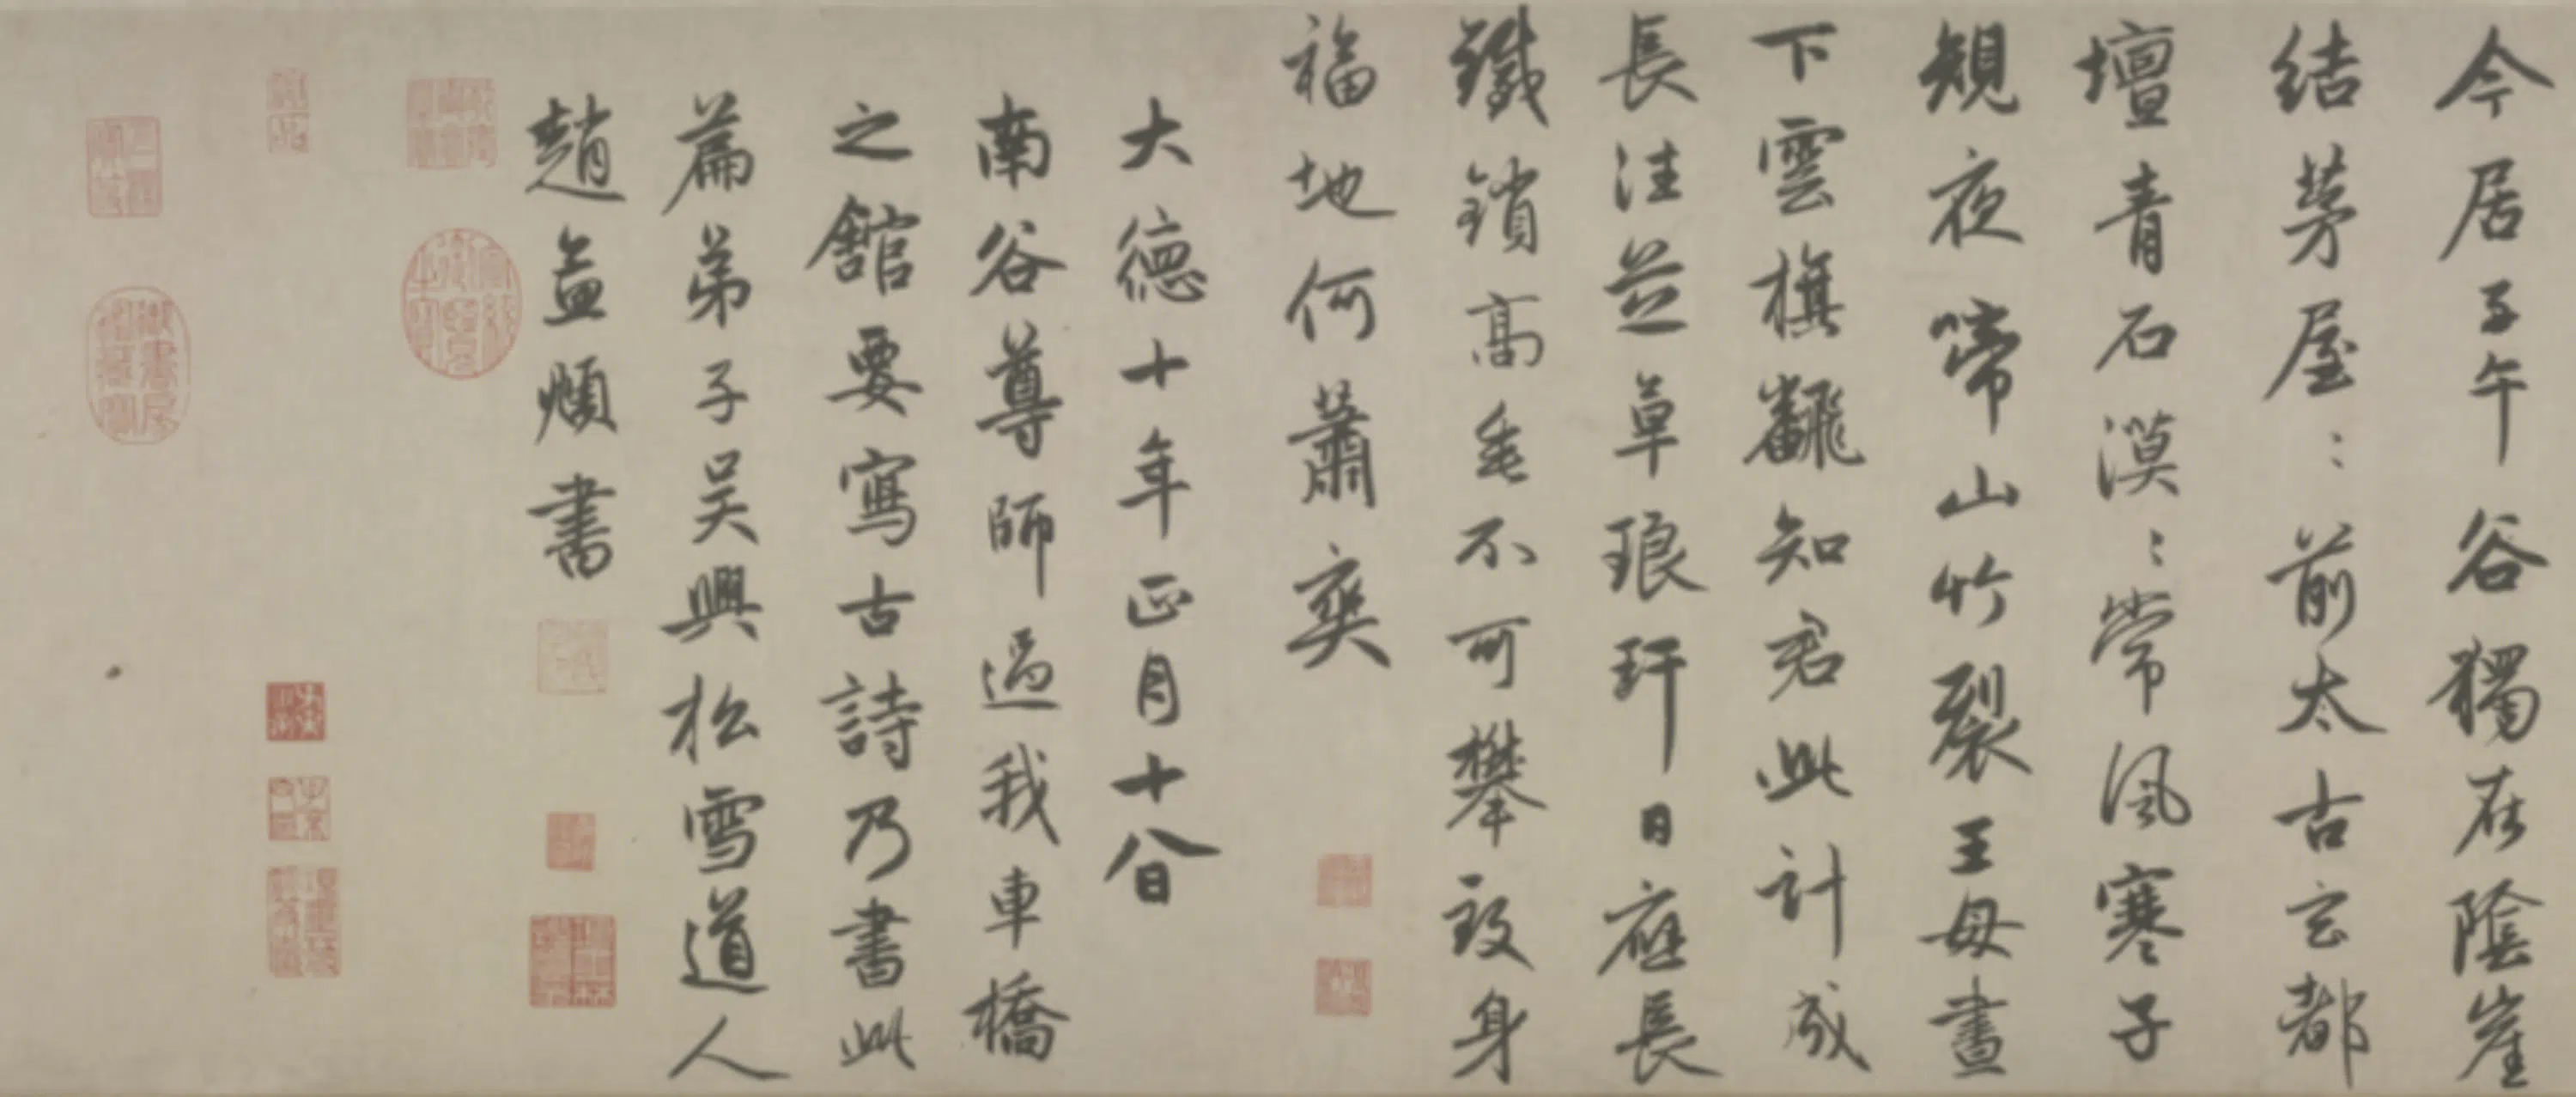 今居子午谷獨在陰崖
結茅屋〻前太古玄都
壇青石漠〻常風寒子
規夜啼山竹裂王母晝
下雲旗翻知君此計成
長往芝草琅玕日應長
鐵鎖高垂不可攀致身
福地何蕭爽
大德十年正月十八日
南谷尊師過我車橋
之舘要寫古詩乃書此
篇弟子吳興松雪道人
趙孟頫書